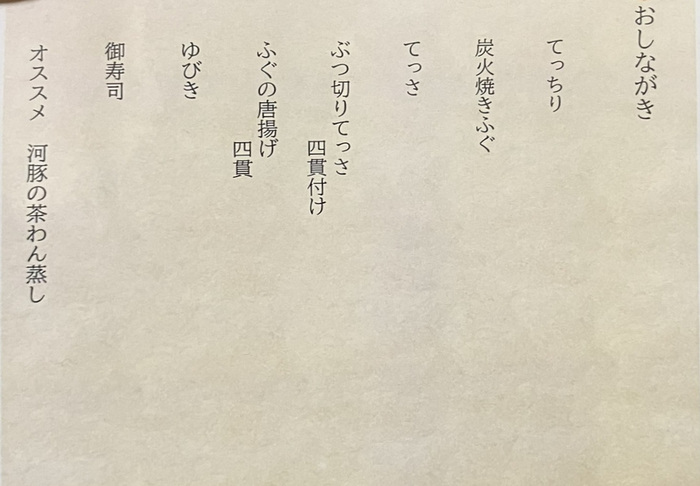 おしながき
てっちり
炭火焼きふぐ
てっさ
ぶつ切りてっさ
四貫付け
ふぐの唐揚げ
四貫
ゆびき
御寿司
オススメ　河豚の茶わん蒸し